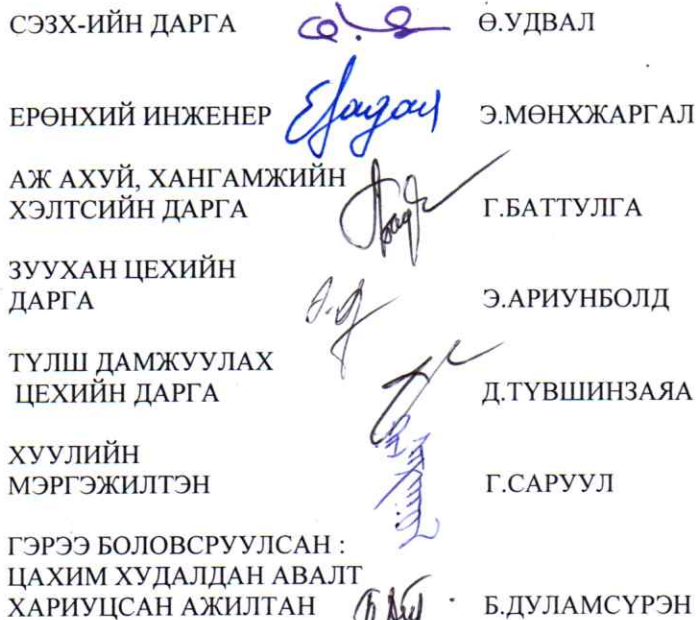 СЭЗХ-ИЙН ДАРГА Ө.УДВАЛ
ЕРӨНХИЙ ИНЖЕНЕР Э.МӨНХЖАРГАЛ
АЖ АХУЙ, ХАНГАМЖИЙН
ХЭЛТСИЙН ДАРГА Г.БАТТУЛГА
ЗУУХАН ЦЕХИЙН
ДАРГА Э.АРИУНБОЛД
ТҮЛШ ДАМЖУУЛАХ
ЦЕХИЙН ДАРГА Д.ТҮВШИНЗАЯА
ХУУЛИЙН
МЭРГЭЖИЛТЭН Г.САРУУЛ
ГЭРЭЭ БОЛОВСРУУЛСАН :
ЦАХИМ ХУДАЛДАН АВАЛТ
ХАРИУЦСАН АЖИЛТАН Б.ДУЛАМСҮРЭН